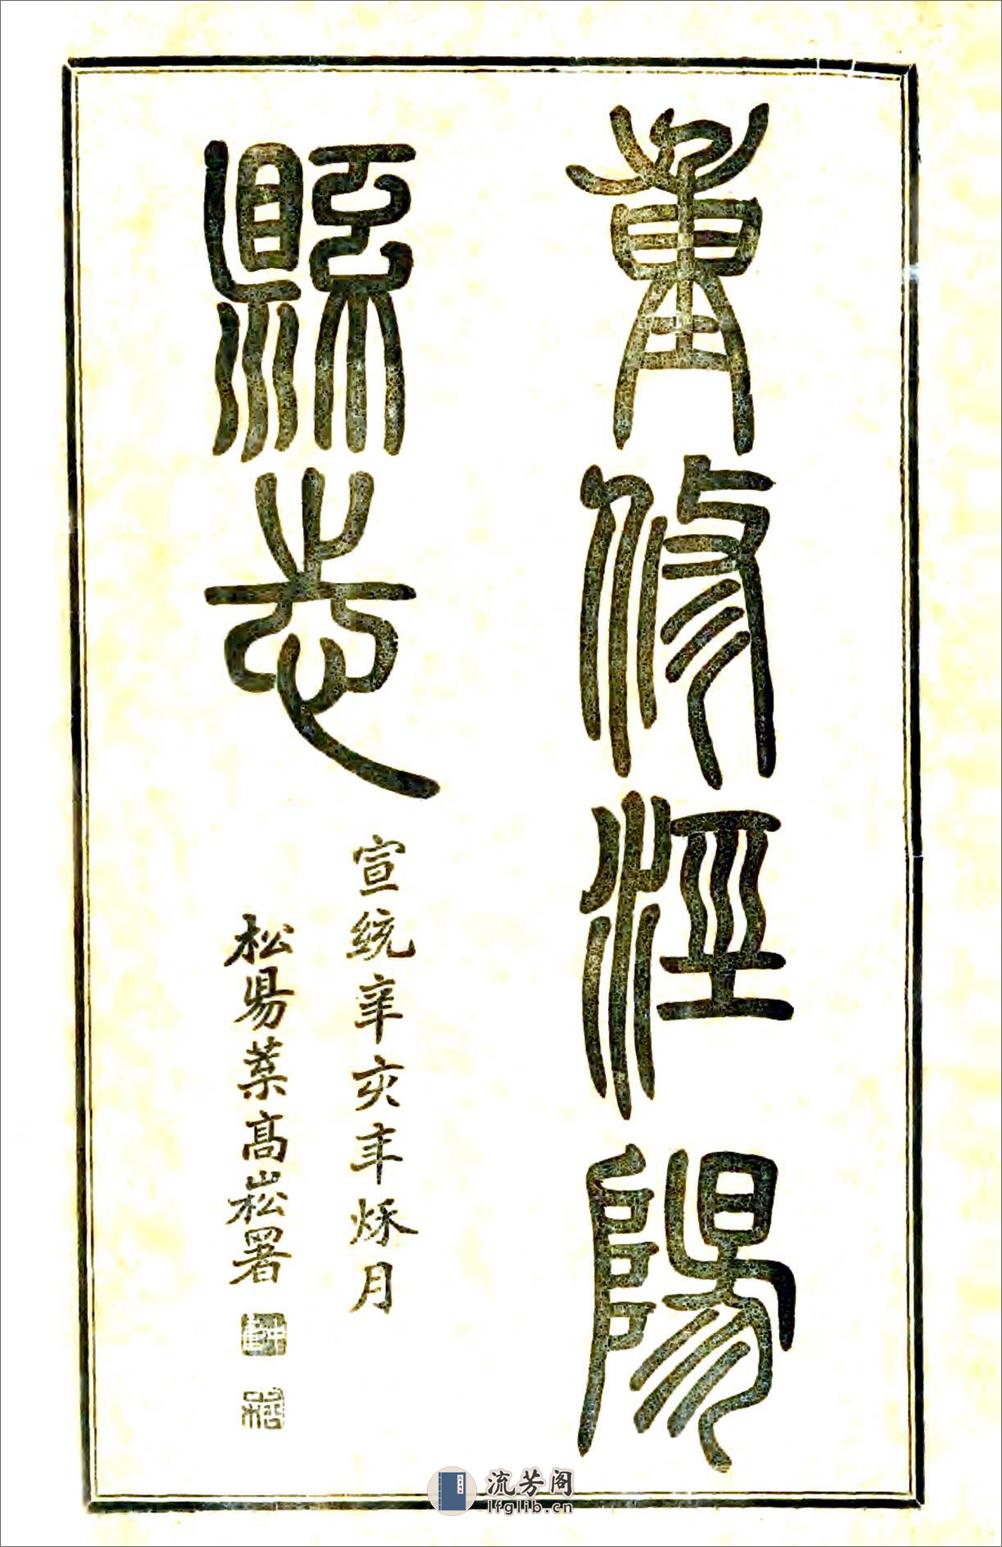 重修涇陽
縣志
宣統辛亥年秌月
松昜葉高崧署
流芳阁
lfglib.cn